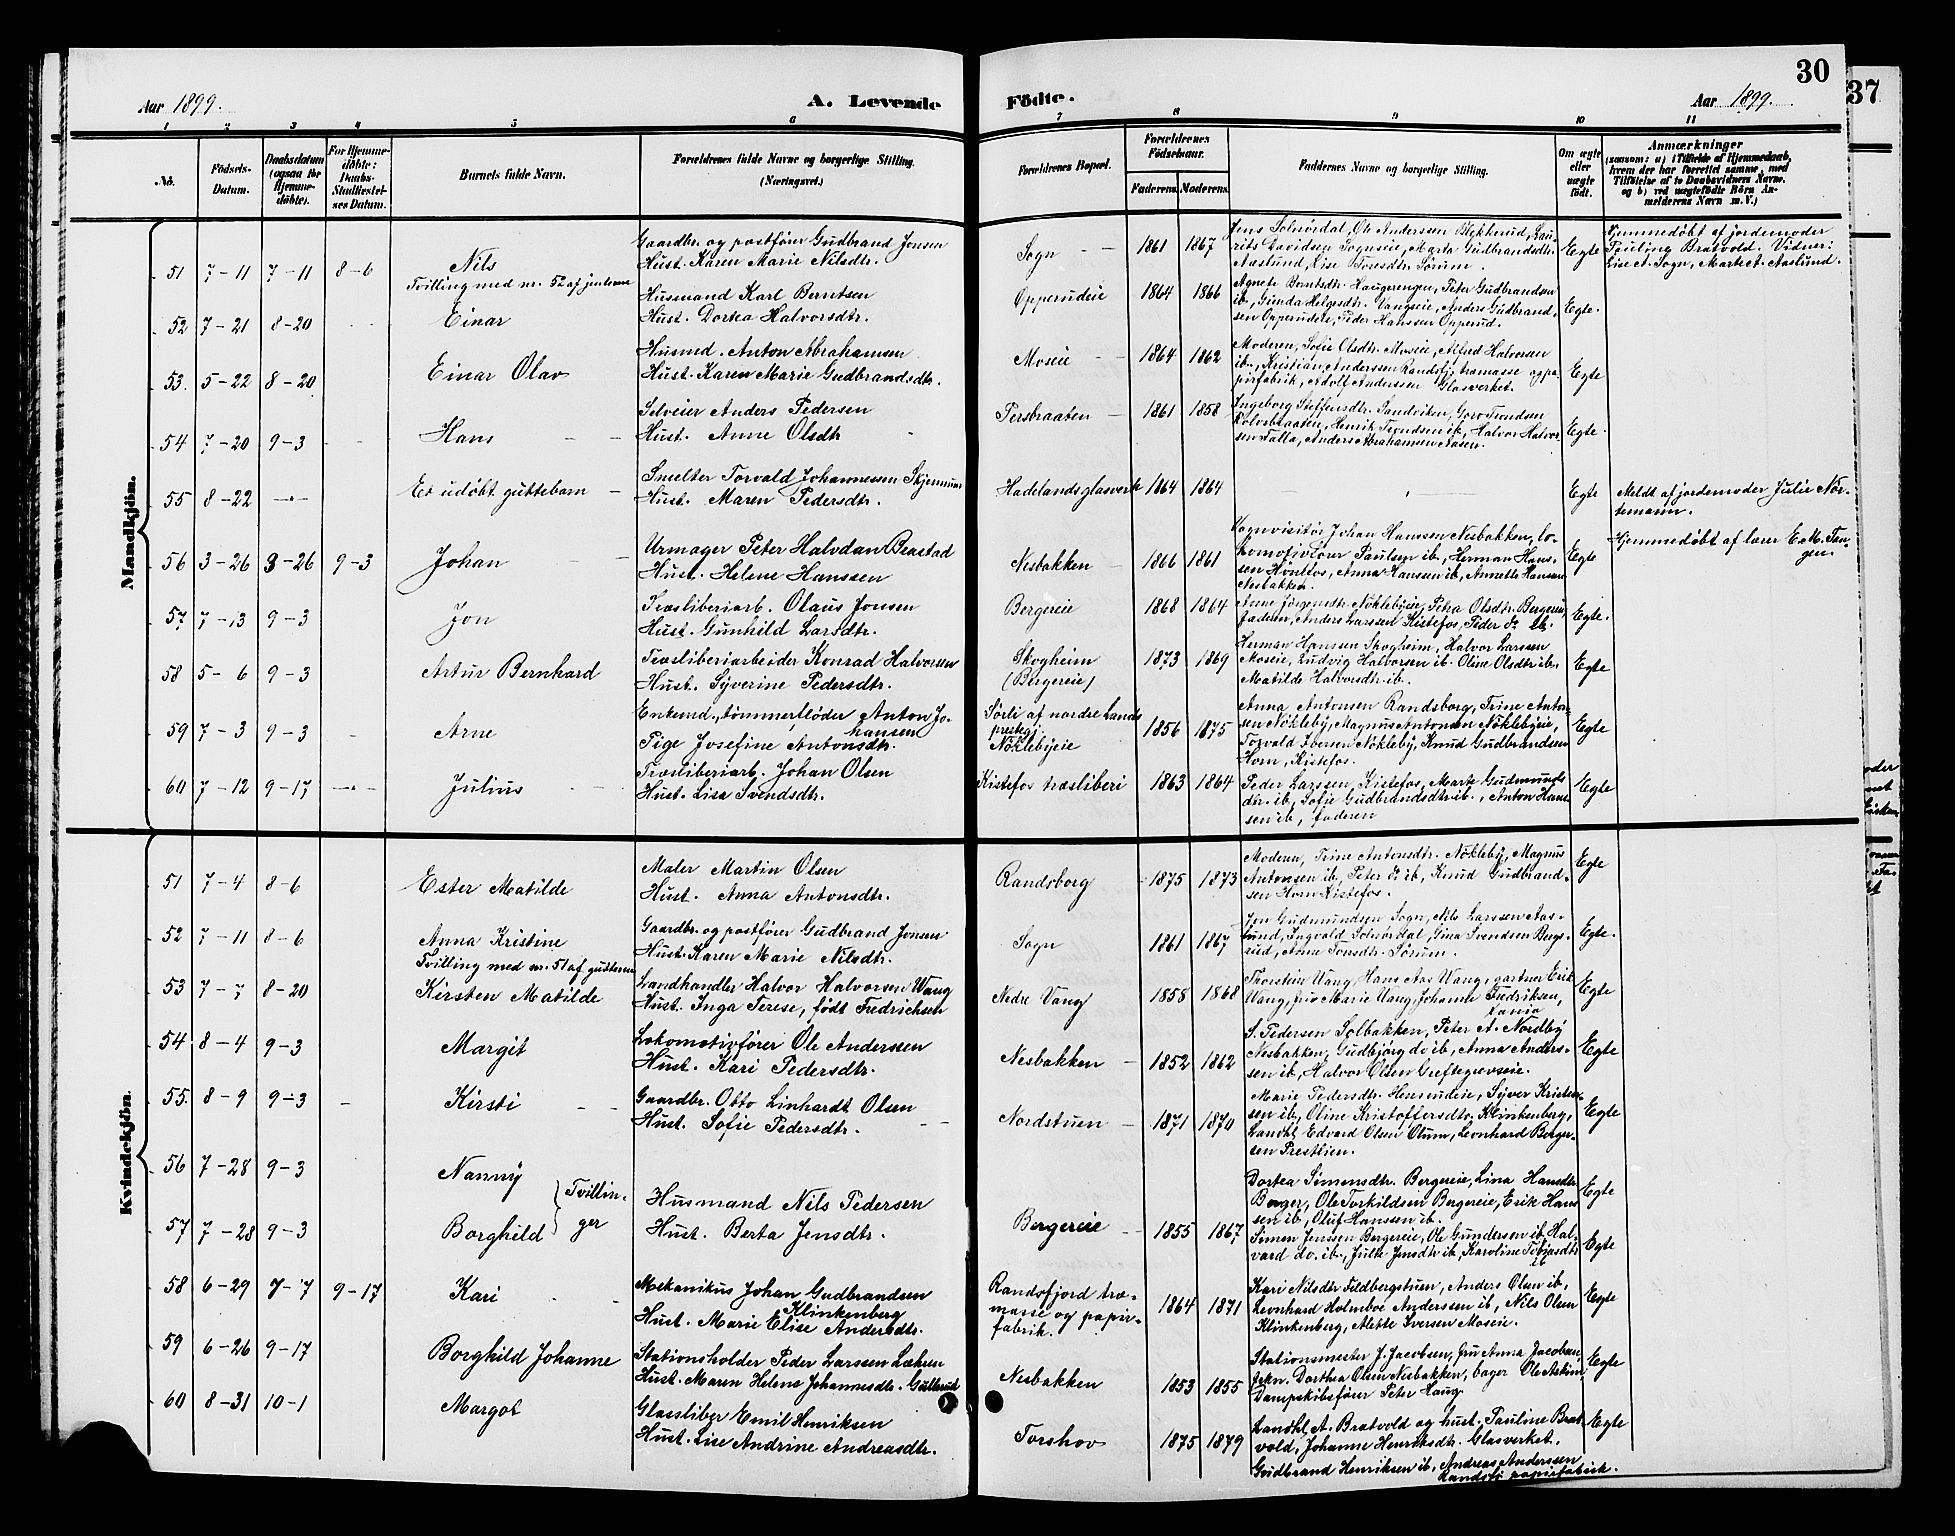 30
37
Aar 1899.
A. Levende Födte.
Aar 1899.
1 2 3 4 5 6 7 8 9 10 11
No.
Födsels-
Datum.
Daabsdatum
(ogsaa for
Hjemme-
döbte).
For Hjemme-
döbte:
Daabs-
Stadfæstel-
ses Datum.
Barnets fulde Navn.
Forældrenes fulde Navne og borgerlige Stilling.
(Næringsvei.)
Forældrenes Bopæl.
Forældrenes
Födselsaar.
Faderens. Moderens.
Faddernes Navne og borgerlige Stilling.
Om ægte
eller
uægte
født.
Anmærkninger
(saasom: a) i Tilfælde af Hjemmedaab,
hvem der har forrettet samme, med
Tilföielse af to Daabsvidners Navne,
og b) ved uægtefödte Börn An-
melderens Navn m. V.)
Mandkjön.
51 7-11 7-11 8-6 Nils
Tvilling med nr. 52 af jenterne
Gaardbr. og postfører Gudbrand Jonsen
Hust. Karen Marie Nilsdtr.
Sogn 1861 1867
Jens Solnørdal, Ole Anderssen Blekkerud, Lau-
rits Davidsen Sognseie, Marta Gudbrandsdtr.
Aaslund, Lise Tonsdtr. Sørum.
Egte
Hjemmedøbt af jordemoder
Pauline Bratvold. Vidner:
Lise A. Sogn, Marte A. Aaslund.
52 7-21 8-20 Einar
Husmand Karl Berntsen
Hust. Dortea Halvorsdtr.
Opperudeie 1864 1866
Agnete Berntsdtr. Haugerengen, Peter Gudbrandsen
ib., Gunda Helgesdtr. Vangseie, Anders Gudbrand-
sen Opperudeie, Peder Hanssen Opperud.
Egte.
53. 5-22 8-20 Einar Olav
Husmd. Anton Abrahamsen
Hust. Karen Marie Gudbrandsdtr.
Moseie 1864 1862
Moderen, Sofie Olsdtr. Moseie, Alfred Halvorsen
ib., Kristian Anderssen Randsfj. træmasse og pa-
pirfabrik, Adolf Anderssen Glasverket.
Egte
54 7-20 9-3 Hans
Selveier Anders Pedersen
Hust. Anne Olsdtr
Persbraaten 1861 1858
Ingeborg Steffensdtr. Sandviken, Goro Trondsen
Kolvsbraaten, Henrik Trondsen ib., Halvor Halvor-
sen Talla, Anders Abrahamsen Aasen.
Egte.
55 8-22 Et udøbt guttebarn
Smelter Torvald Johannessen Skjerum
Hust. Maren Pedersdtr.
Hadelands glasverk 1864 1864
Egte
Meldt af jordemoder Julie Nor-
temann.
56 3-26 3-26 9-3 Johan
Urmager Peter Halvdan Beastad
Hust. Helene Hanssen
Nesbakken 1866 1861
Vognvisitør Johan Hanssen Nesbakken, lo-
komotivfører Paulsen ib., Herman Hans-
sen Hønefos, Anna Hanssen ib., Annette Hansen
Nesbakken.
Egte
Hjemmedøbt af lærer E. M. Tan-
gen.
57. 7-13 9-3 Jon
Træsliberiarb. Olaus Jonsen
Hust. Gunhild Larsdtr.
Bergereie 1868 1864
Anne Jørgensdtr. Nøklebyeie, Petra Olsdtr. Bergereie,
faderen, Anders Larssen Kistefos, Peder do ib.
Egte.
58 5-6 9-3 Artur Bernhard
Træsliberiarbeider Konrad Halvorsen
Hust. Syverine Pedersdtr.
Skogheim
(Bergereie)
1873 1869
Herman Hanssen Skogheim, Halvor Larssen
Moseie, Ludvig Halvorsen ib. Oline Olsdtr ib.
Matilde Halvorsdtr. ib.
Egte
59 7-3 9-3 Arne
Enkemd. tømmerfløder Anton Jo-
hansen
Pige Josefine Antonsdtr.
Sørli af nordre Lands
prestegj.
Nøklebyeie
1856 1875
Anna Antonsen Randsborg, Trine Anton-
sen Nøkleby, Magnus Antonsen Nøklebyeie,
Torvald Iversen Nøkleby, Knud Gudbrandsen
Horn, Kistefos.
Egte
60 7-12 9-17 Julius
Træsliberiarb. Johan Olsen
Hust. Lisa Svendsdtr.
Kistefos træsliberi 1863 1864
Peder Larssen, Kistefos, Marte Gudmunds-
dtr. ib., Sofie Gudbrandsdtr. ib., Anton Hans-
sen ib., faderen
Egte
Kvindekjön.
51 7-4 8-6 Ester Matilde
Maler Martin Olsen
Hust. Anna Antonsdtr.
Randsborg 1875 1873
Moderen, Trine Antonsdtr. Nøkleby, Magnus
Antonsen ib., Peter do ib., Knud Gudbrand-
sen Horn Kistefos.
Egte
52 7-11 8-6 Anna Kristine
Tvilling med nr. 51 af gutterne
Gaardbr. og postfører Gudbrand Jonsen
Hust. Karen Marie Nilsdtr.
Sogn 1861 1867
Jon Gudmundsen Sogn, Nils Larssen Aas-
lund, Ingvald Solnørdal, Gina Svendsen Bergs-
rud, Anne Tonsdtr. Sørum.
Egte.
53 7-7 8-20 Kirsten Matilde
Landhandler Halvor Halvorsen Wang
Hust. Inga Terese, født Fredrichsen
Nedre Vang 1858 1868
Thorstein Wang, Hans Aas Wang, gartner Erik
Wang, fru Marie Wang, Johanne Fredriksen,
Egte
54 8-4 9-3 Margit
Lokomotivfører Ole Anderssen
Hust. Kari Pedersdtr.
Nesbakken 1852 1862
S. Pedersen Solbakken, Peter A. Nordby
Nesbakken, Gudbjørg do ib., Anna Anders-
sen ib., Halvor Olsen Greftegrevseie.
Egte
55. 8-9 9-3 Kirsti
Gaardbr. Otto Linhardt Olsen
Hust. Sofie Pedersdtr.
Nordstuen 1871 1870
Marie Pedersdtr. Hensrudeie, Syver Kristen-
sen ib., Oline Kristoffersdtr. Klinkenberg,
Landhl. Edvard Olsen Olum, Leonhard Berger-
sen Prestlien.
Egte
56 7-28 9-3 Nanny
57 7-28 9-3 Borghild
Tvillin-
ger
Husmand Nils Pedersen
Hust. Berta Jensdtr.
Bergereie 1855 1867
Dortea Simensdtr. Bergereie, Lina Hansdtr.
Berger, Ole Torkildsen Bergereie, Erik Hans-
sen ib., Oluf Hanssen ib.
Egte
Simen Jenssen Bergereie, Ole Gundersen ib., Hal-
vard do. ib., Julie Jensdtr ib., Karoline Tobiasdtr
ib
Egte
58 6-29 7-17 9-17 Kari
Mekanikus Johan Gudbrandsen
Klinkenberg
Hust. Marie Elise Andersdtr.
Randsfjord træ-
masse og papir-
fabrik.
1864 1871
Kari Nilsdtr Feldbergstuen, Anders Olsen ib.,
Leonhard Holmboe Anderssen ib., Nils Olsen
Klinkenberg, Alette Iversen Moseie.
Egte
59 6-26 9-17 Borghild Johanne
Stationsholder Peder Larssen Læhren
Hust. Maren Helene Johannesdtr. Gullerud
Nesbakken 1853 1855
Stationsmester J. Jacobsen, fru Anna Jacobsen,
frkn. Dorthea Olsen Nesbakken, bager Ole Askim
Dampskibsfører Peter Haug
Egte
60 8-31 10-1 Margot
Glassliber Emil Henriksen
Hust. Lise Andrine Andreasdtr.
Torshov 1875 1879
Landhl. A. Bratvold og hust. Pauline Brat-
vold, Johanne Henriksdtr. Glasverket,
Gudbrand Henriksen ib., Andreas Anderssen
Randsfj papirfabrik.
Egte